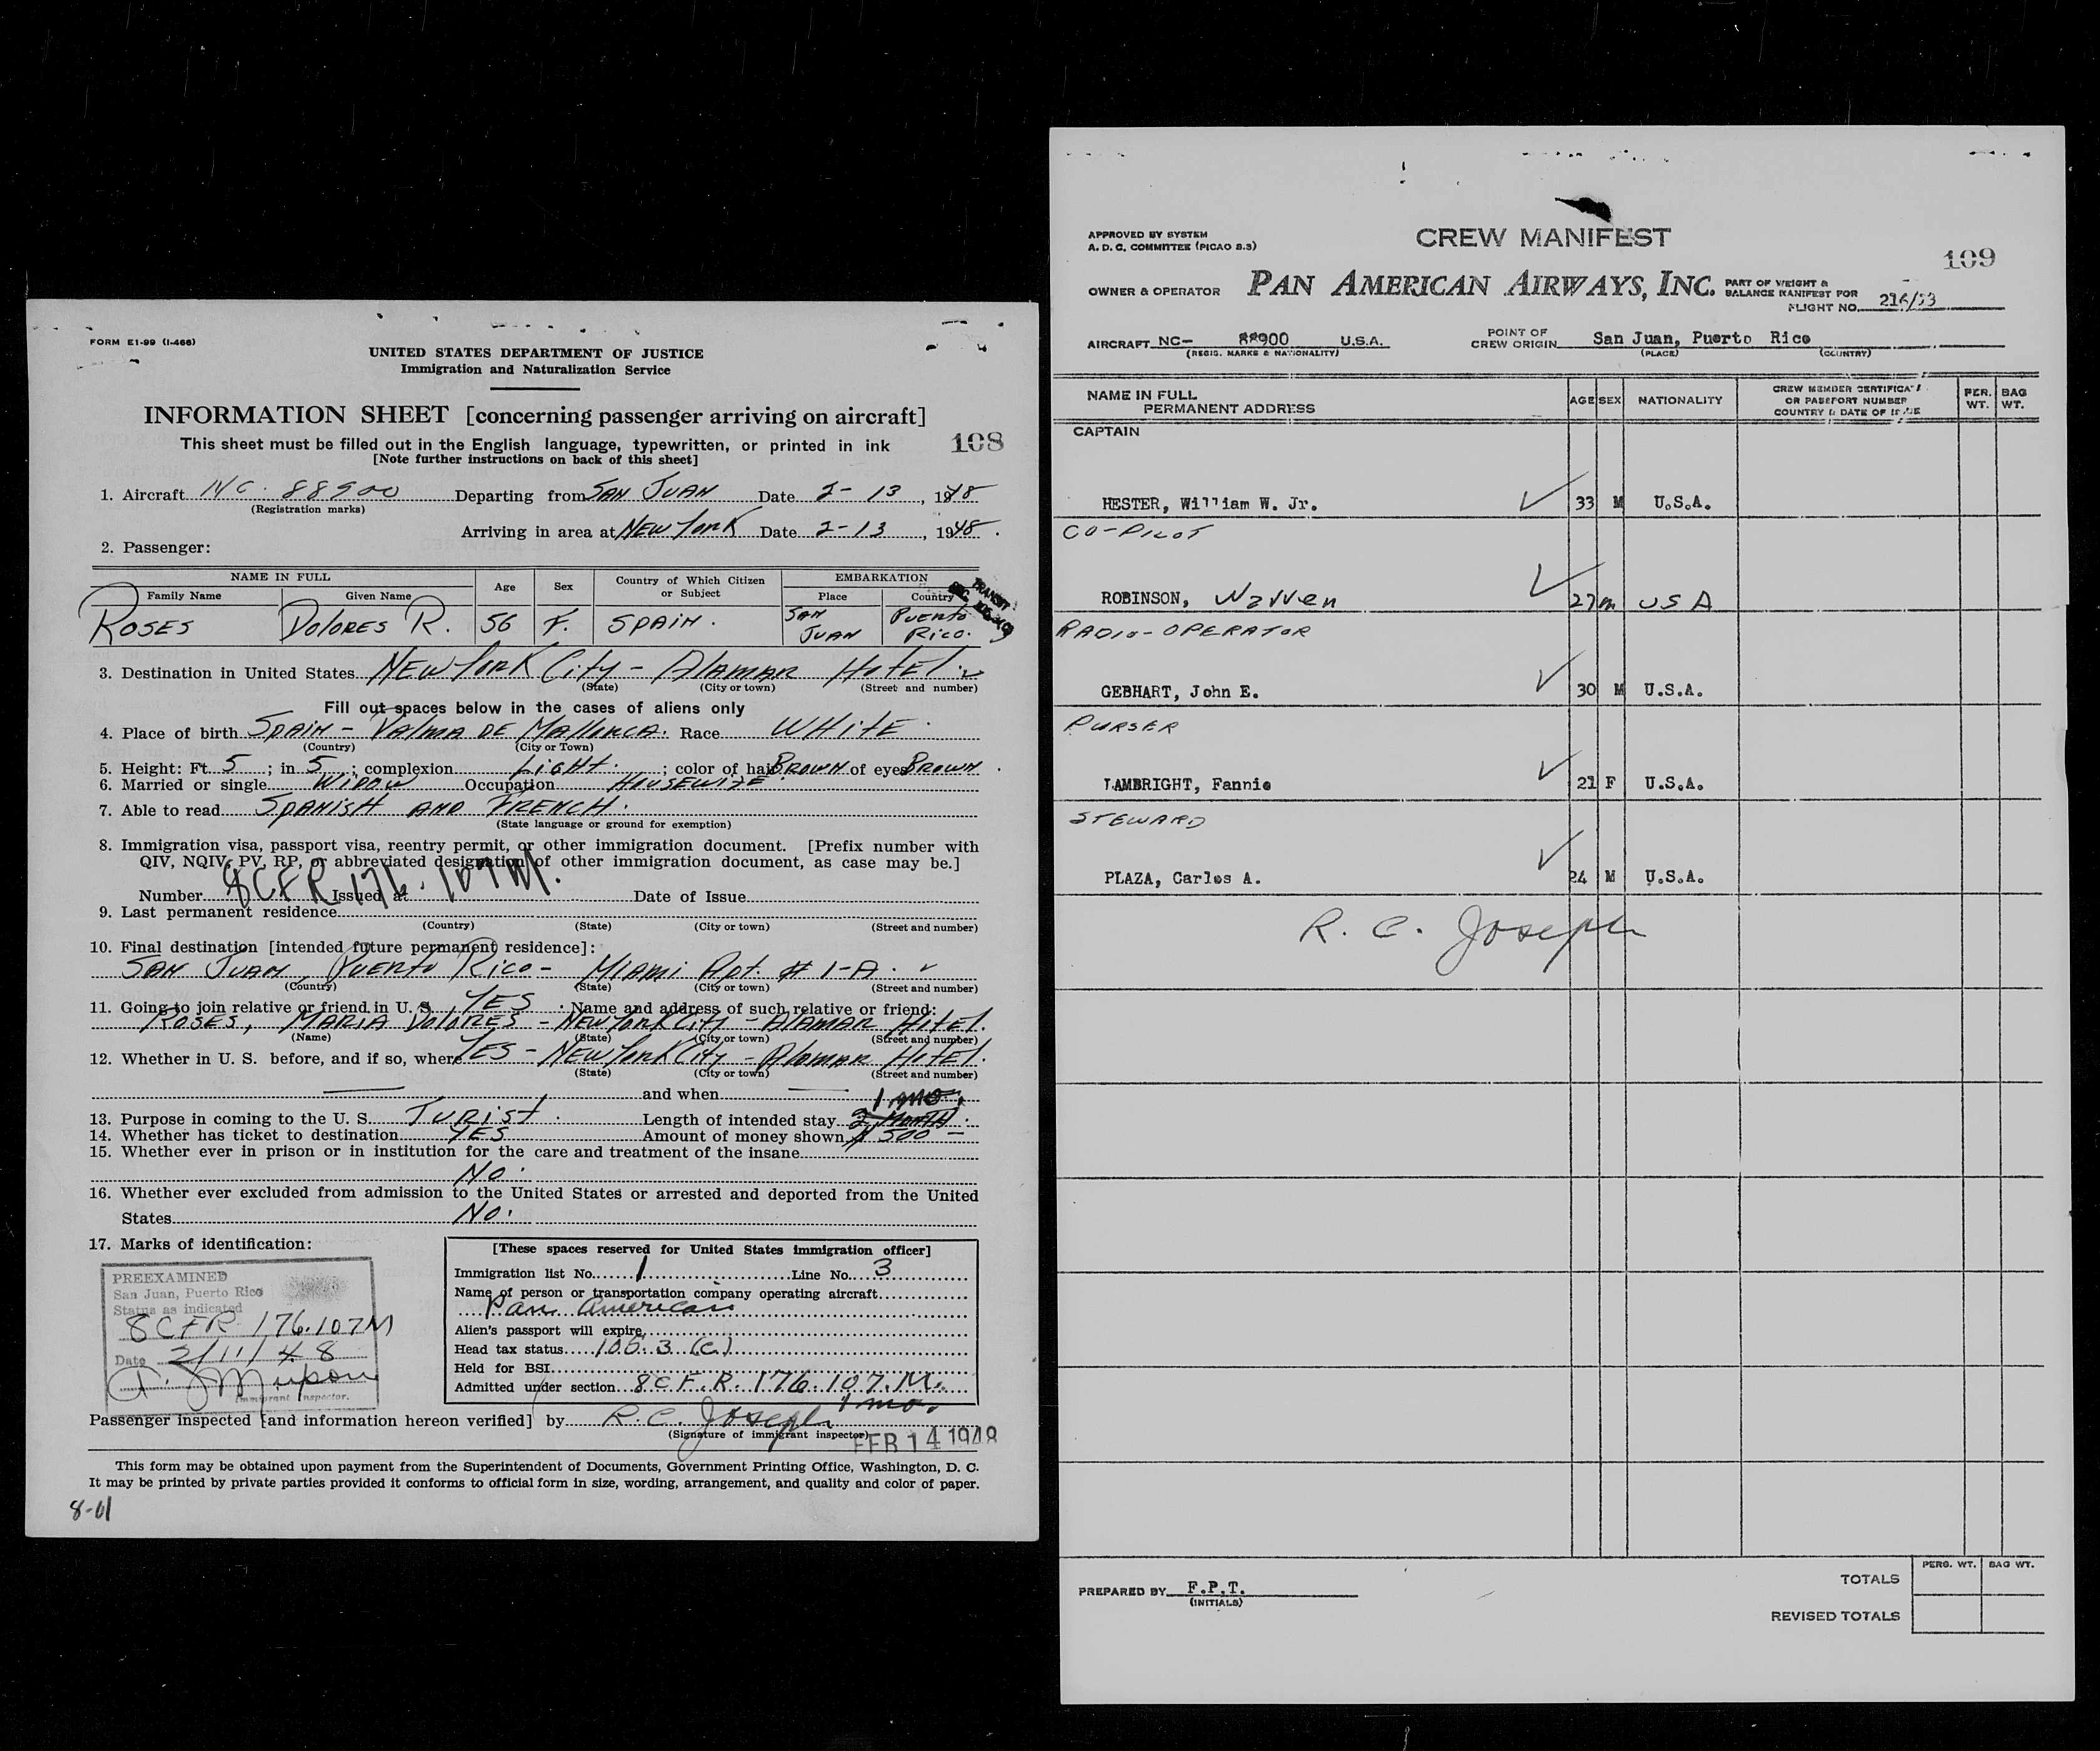 FORM E1-99 (I-466)
UNITED STATES DEPARTMENT OF JUSTICE
Immigration and Naturalization Service
INFORMATION SHEET [concerning passenger arriving on aircraft]
This sheet must be filled out in the English language, typewritten, or printed in ink
108
[Note further instructions on back of this sheet]
1. Aircraft NC. 88900 Departing from SAN JUAN Date 2-13, 1948
(Registration marks)
Arriving in area at NEW YORK Date 2-13, 1948.
2. Passenger:
NAME IN FULL Age Sex Country of Which Citizen or Subject EMBARKATION
Family Name Given Name Place Country
TRANSIT
ROSES DOLORES R. 56 F. SPAIN. SAN JUAN PUERTO RICO.
3. Destination in United States NEW YORK City - ALAMAR HOTEL.
(State) (City or town) (Street and number)
Fill out spaces below in the cases of aliens only
4. Place of birth SPAIN - PALMA DE MALLORCA. Race WHITE.
(Country) (City or Town)
5. Height: Ft. 5; in 5; complexion LIGHT.; color of hair BROWN of eyes BROWN.
6. Married or single WIDOW Occupation HOUSEWIFE
7. Able to read SPANISH AND FRENCH.
(State language or ground for exemption)
8. Immigration visa, passport visa, reentry permit, or other immigration document. [Prefix number with
QIV, NQIV, PV, RP, or abbreviated designation of other immigration document, as case may be.]
Number 8CFR 176.107M. Issued at Date of Issue
9. Last permanent residence
(Country) (State) (City or town) (Street and number)
10. Final destination [intended future permanent residence]:
SAN JUAN, PUERTO RICO - MIAMI Apt. # 1-A.
(Country) (State) (City or town) (Street and number)
11. Going to join relative or friend in U. S. YES. Name and address of such relative or friend:
ROSES, MARIA DOLORES - NEW YORK City - ALAMAR HOTEL.
(Name) (State) (City or town) (Street and number)
12. Whether in U. S. before, and if so, where YES - NEW YORK City - ALAMAR HOTEL.
(State) (City or town) (Street and number)
and when
1 mo.
13. Purpose in coming to the U. S. TURIST. Length of intended stay 2 MONTH.
14. Whether has ticket to destination YES Amount of money shown $ 500 -
15. Whether ever in prison or in institution for the care and treatment of the insane
NO.
16. Whether ever excluded from admission to the United States or arrested and deported from the United
States NO.
17. Marks of identification:
PREEXAMINED
San Juan, Puerto Rico
Status as indicated
8CFR 176.107M
Date 2/11/48
Immigrant Inspector.
[These spaces reserved for United States immigration officer]
Immigration list No. 1 Line No. 3
Name of person or transportation company operating aircraft
Pan American
Alien's passport will expire
Head tax status 105.3 (c)
Held for BSI
Admitted under section 8 C.F.R. 176.107.M.
1 mo.
Passenger inspected [and information hereon verified] by R. C. Joseph
(Signature of immigrant inspector)
FEB 14 1948
This form may be obtained upon payment from the Superintendent of Documents, Government Printing Office, Washington, D. C.
It may be printed by private parties provided it conforms to official form in size, wording, arrangement, and quality and color of paper.
8-01
APPROVED BY SYSTEM
A. D. C. COMMITTEE (PICAO 2.3)
CREW MANIFEST
109
OWNER & OPERATOR PAN AMERICAN AIRWAYS, INC. PART OF WEIGHT & BALANCE MANIFEST FOR FLIGHT NO. 216/13
AIRCRAFT NC- 88900 U.S.A. POINT OF CREW ORIGIN San Juan, Puerto Rico
(REGIS. MARKS & NATIONALITY) (PLACE) (COUNTRY)
NAME IN FULL PERMANENT ADDRESS AGE SEX NATIONALITY CREW MEMBER CERTIFICATE OR PASSPORT NUMBER COUNTRY & DATE OF ISSUE PER. WT. BAG WT.
CAPTAIN
HESTER, William W. Jr. 33 M U.S.A.
CO-PILOT
ROBINSON, Warren 27 m USA
RADIO-OPERATOR
GEBHART, John E. 30 M U.S.A.
PURSER
LAMBRIGHT, Fannie 21 F U.S.A.
STEWARD
PLAZA, Carlos A. 24 M U.S.A.
R. C. Joseph
PERS. WT. BAG WT.
TOTALS
PREPARED BY F.P.T.
(INITIALS)
REVISED TOTALS